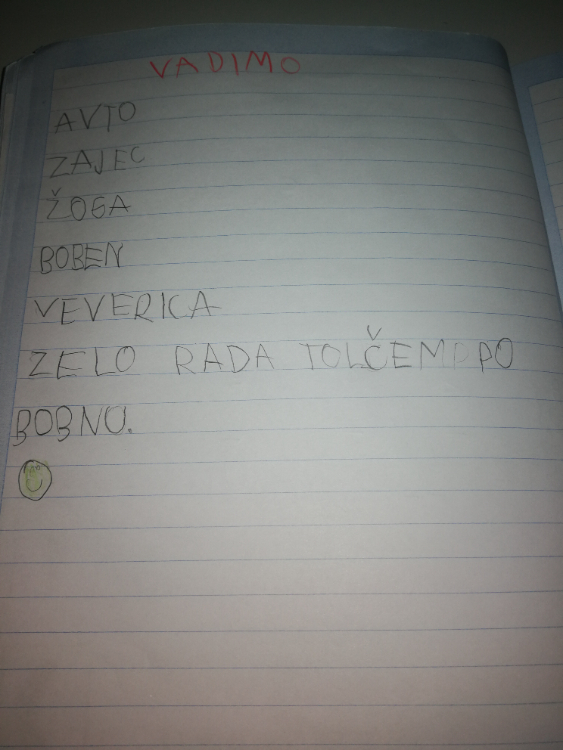 VADIMO
AVTO
ZAJEC
ŽOGA
BOBEN
VEVERICA
ZELO RADA TOLČEM PO
BOBNU.